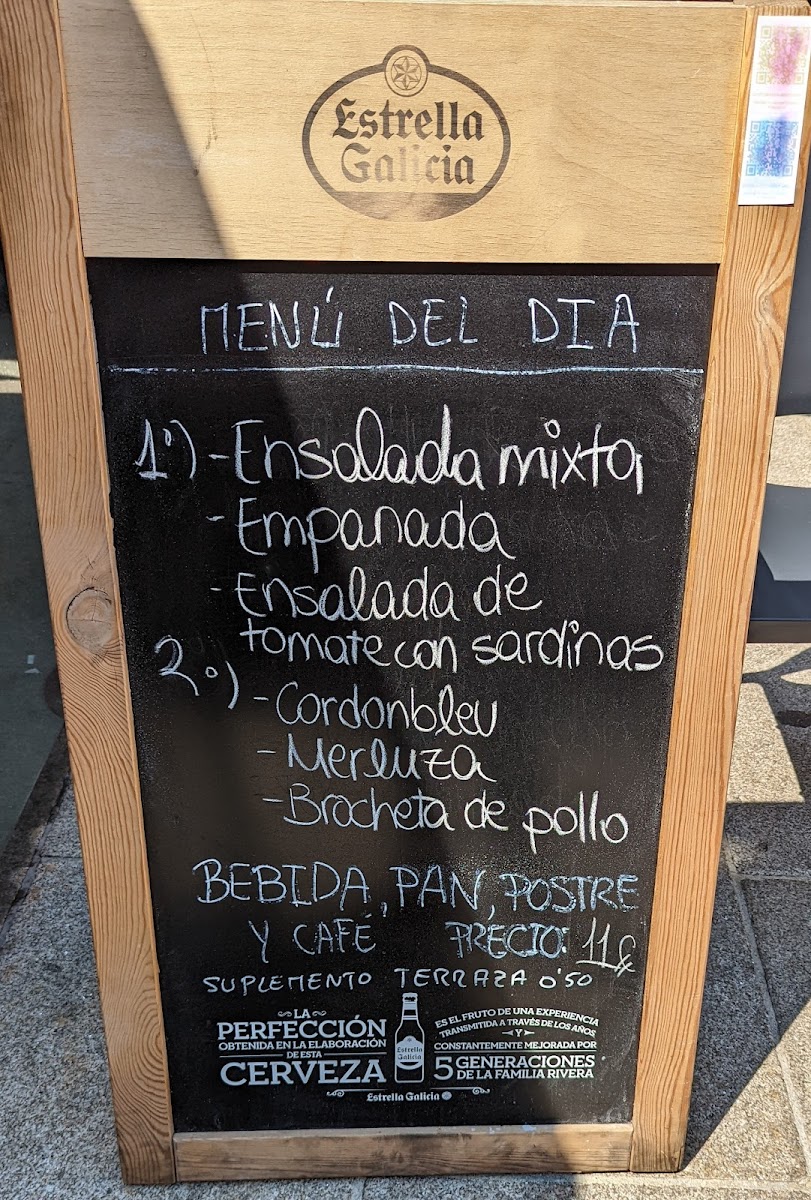 Estrella
Galicia
MENÚ DEL DIA
1º) - Ensalada mixta
- Empanada
- Ensalada de
tomate con sardinas
2º) - Cordonbleu
- Merluza
- Brocheta de pollo
BEBIDA, PAN, POSTRE
Y CAFÉ PRECIO: 11€
SUPLEMENTO TERRAZA 0'50
LA
PERFECCIÓN
OBTENIDA EN LA ELABORACIÓN
DE ESTA
CERVEZA
Estrella
Galicia
ES EL FRUTO DE UNA EXPERIENCIA
TRANSMITIDA A TRAVÉS DE LOS AÑOS
Y
CONSTANTEMENTE MEJORADA POR
5 GENERACIONES
DE LA FAMILIA RIVERA
Estrella Galicia